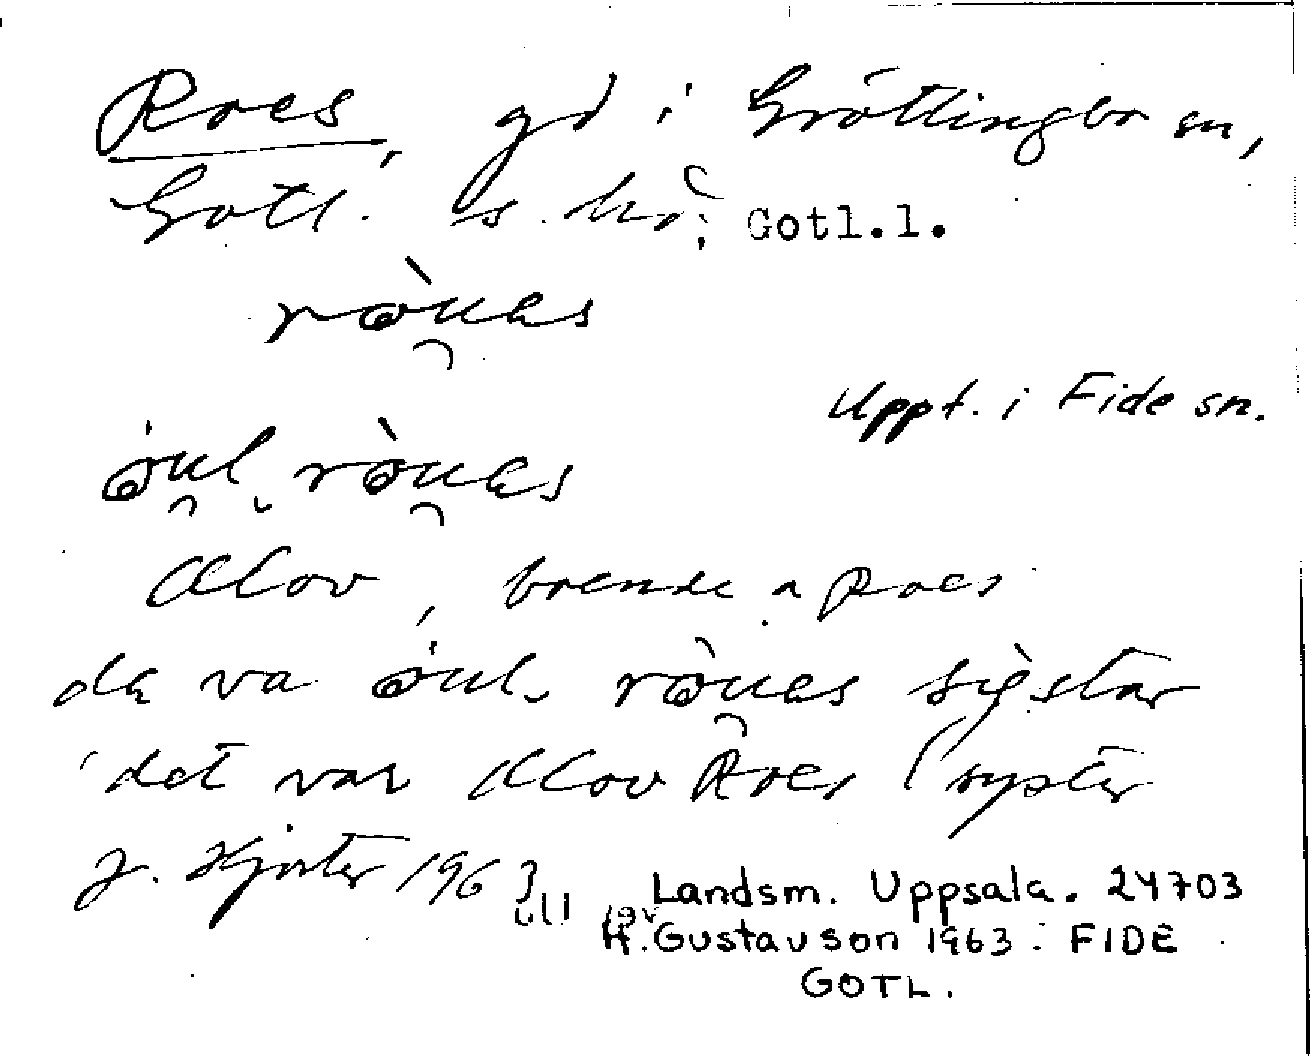 Roes, gd i Gröttlingbo sn,
Gotl. s. hd; Gotl.l.
ròues
Uppt. i Fide sn.
óul ròues
Olov, boende a Roes
da va óul ròues sìstar
det var Olov Roes syster
J. Hjorter 1963
Landsm. Uppsala. 24703
H. Gustavson 1963. FIDE
GOTL.